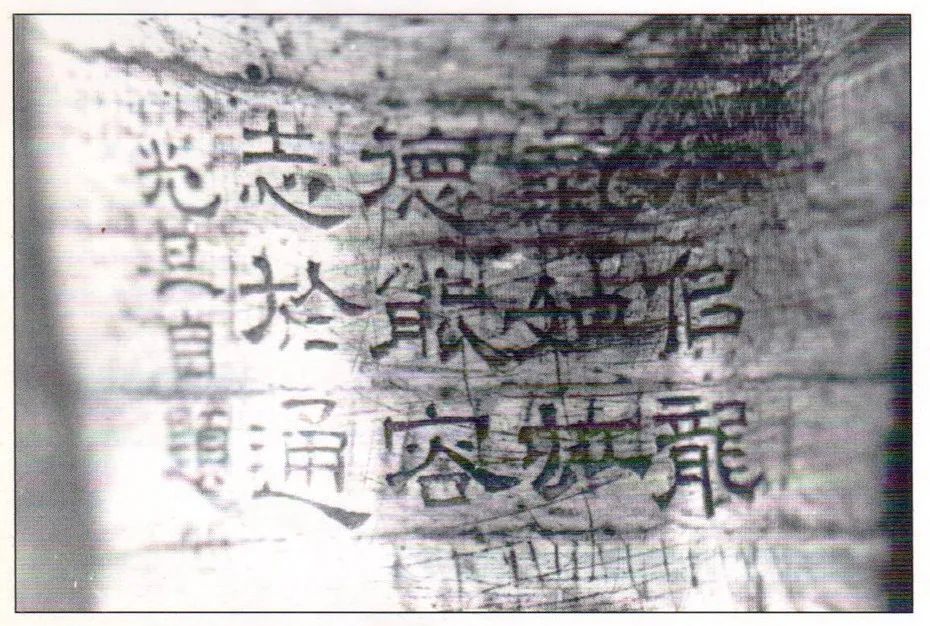 佀龍
氣如虹
德能容
志於通
光旦自題